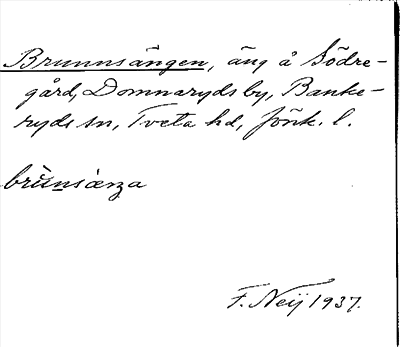 Brunnsängen, äng å Södre-
gård, Domnaryds by, Banke-
ryds sn, Tveta hd, Jönk. l.
brùnsæŋa
F. Neij 1937.